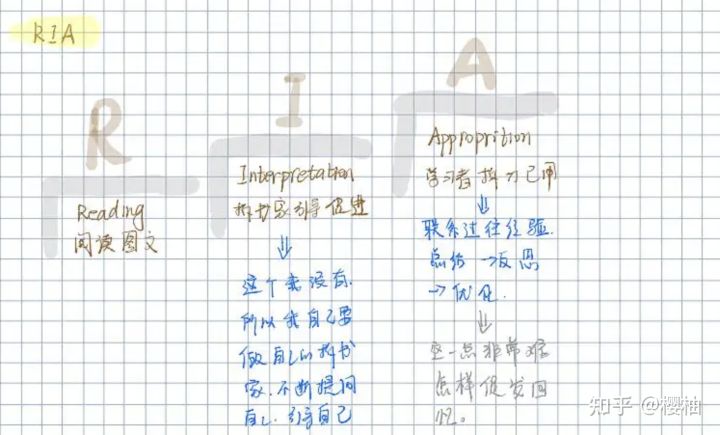 RIA
R
I
A
Reading
阅读图文
Interpretation
拆书家引导促进
这个我没有.
所以我自己要
做自己的拆书
家.不断提问
自己.引导自己
Approprition
学习者拆为己用
联系过往经验.
总结→反思
→优化.
这一点非常难
怎样促发回
忆。
知乎 @樱柚